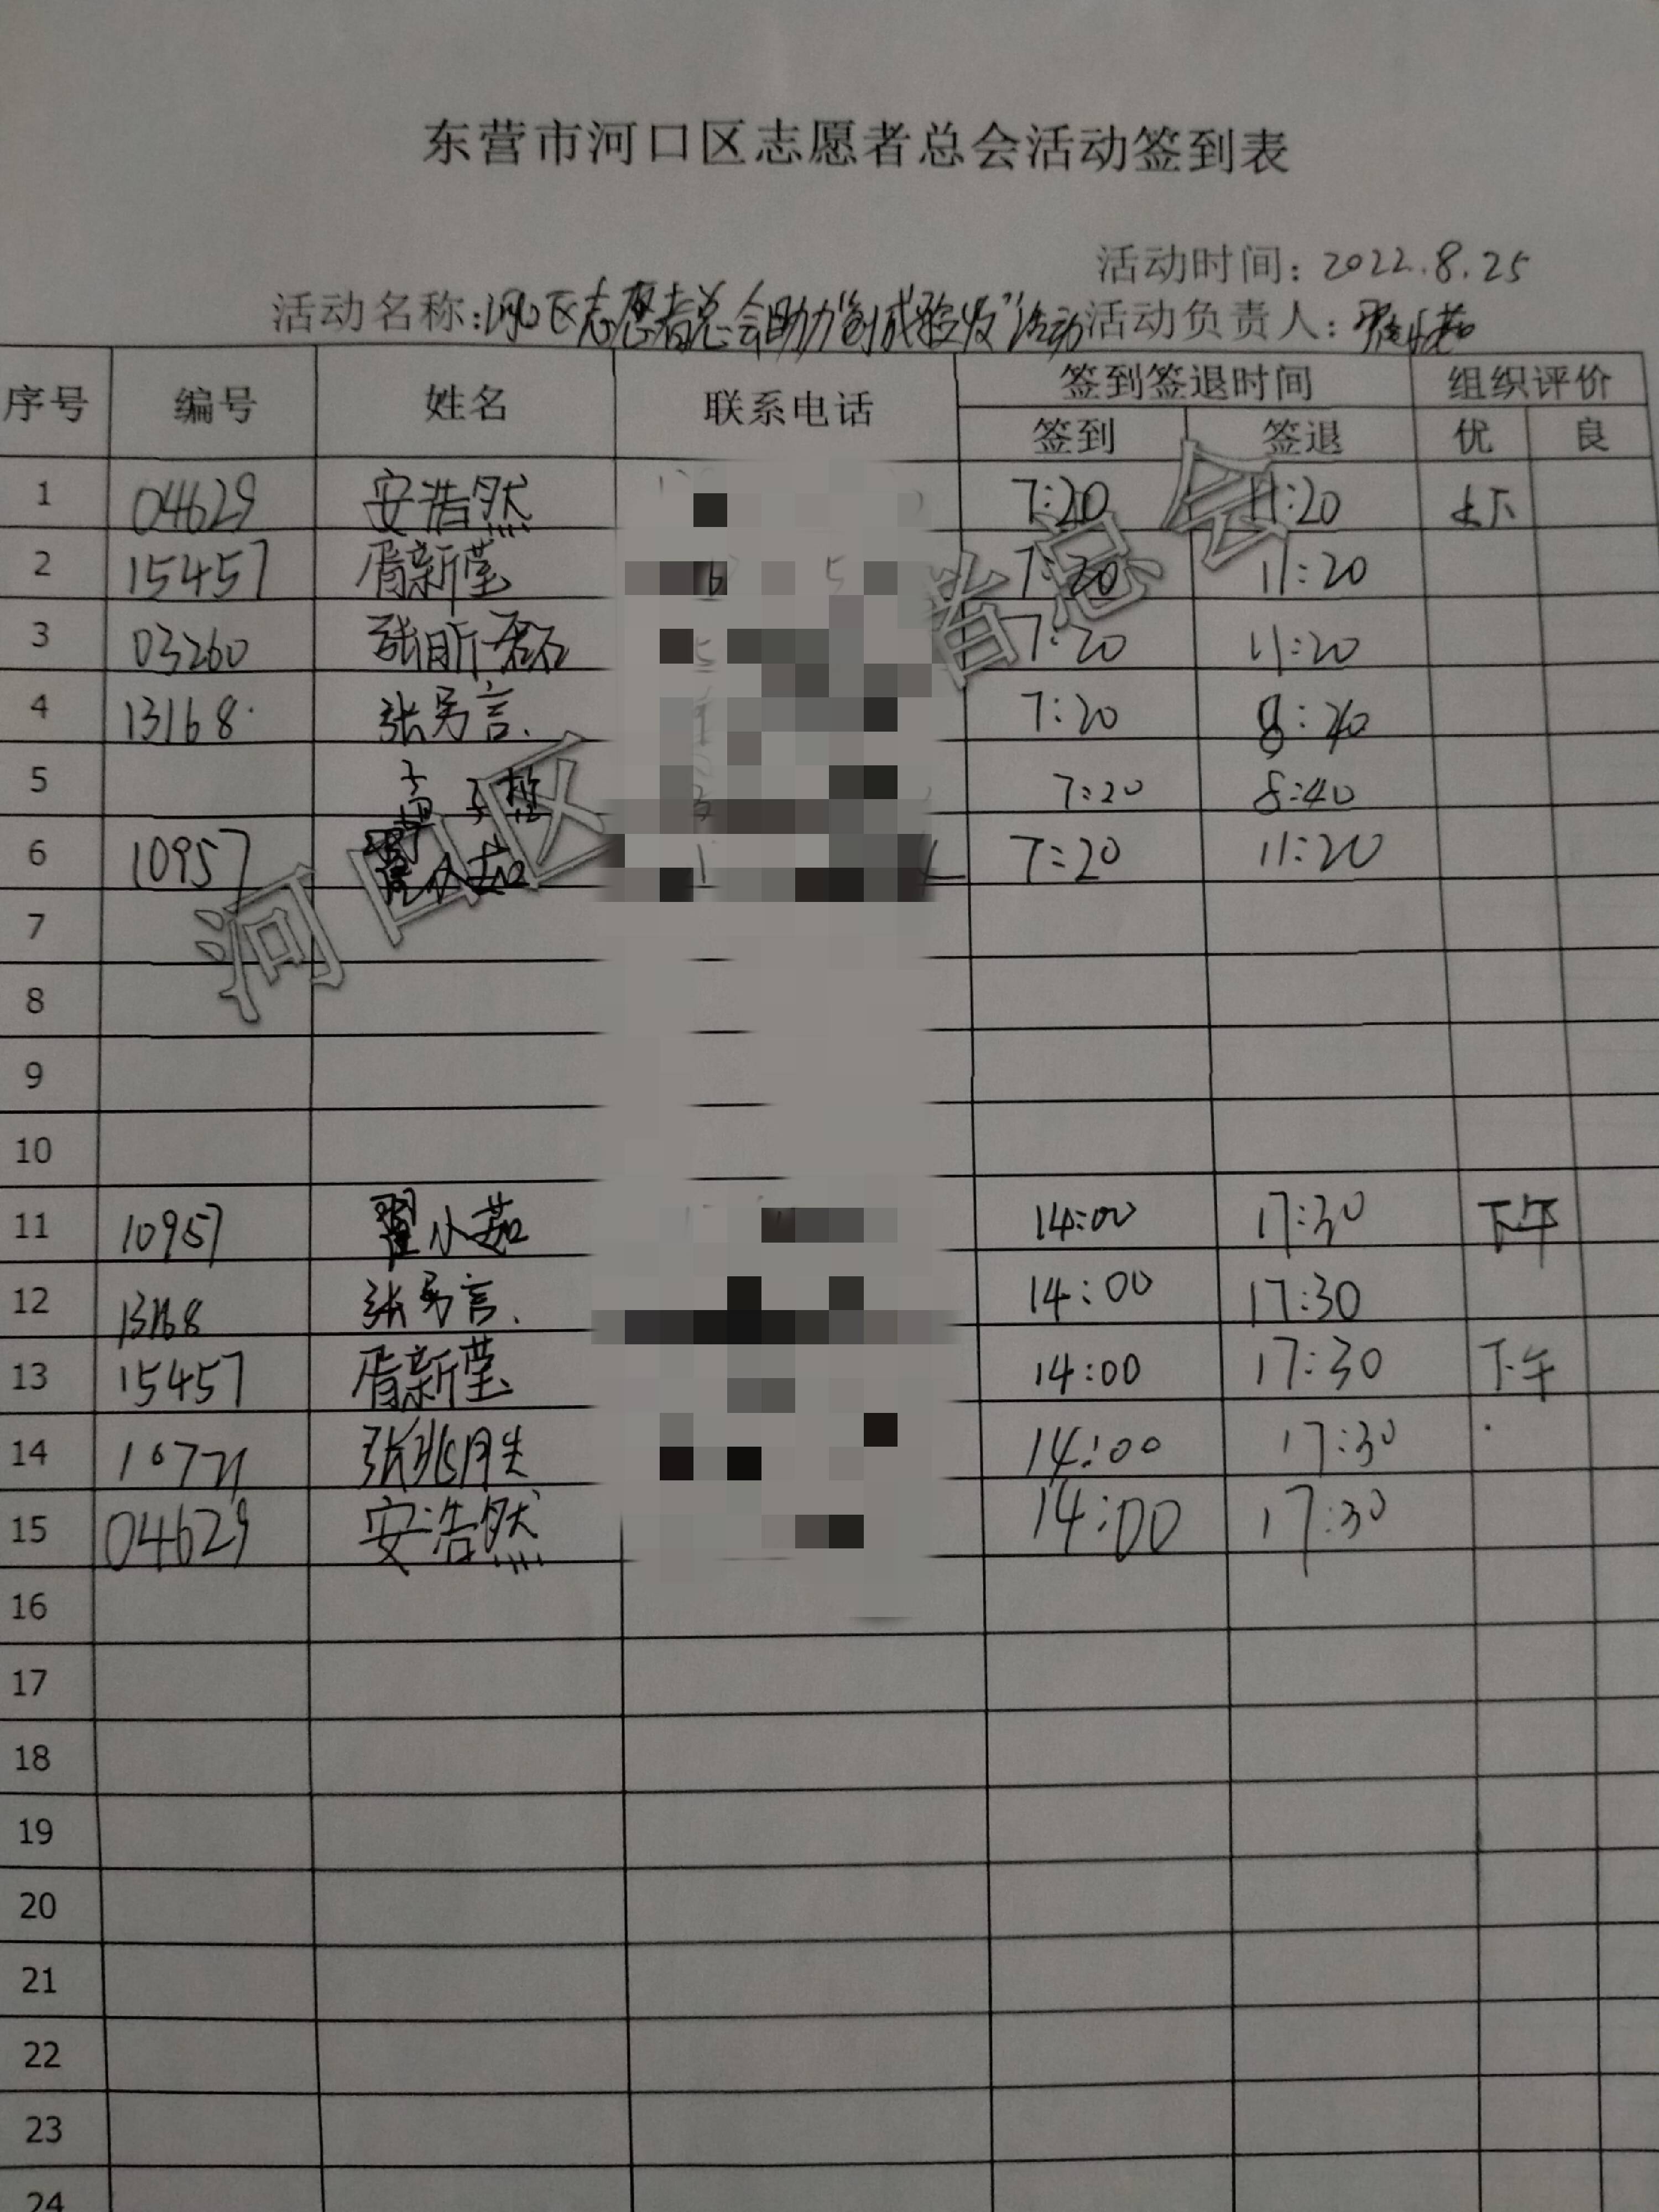 东营市河口区志愿者总会活动签到表
活动时间：2022.8.25
活动名称：河口区志愿者总会助力"创城 活动 活动负责人：翟小茹
序号 编号 姓名 联系电话 签到签退时间 组织评价
签到 签退 优 良
1 04629 安浩然 7:20 11:20
2 15457 胥新莹 7:20 11:20
3 03260 张昕 7:20 11:20
4 13168 张 言 7:20 8:40
5 7:20 8:40
6 10957 翟小茹 7:20 11:20
7
8
9
10
11 10957 翟小茹 14:00 17:30 下午
12 13168 张 言 14:00 17:30
13 15457 胥新莹 14:00 17:30 下午
14 张兆 14:00 17:30
15 04629 安浩然 14:00 17:30
16
17
18
19
20
21
22
23
24
河口区 者总会